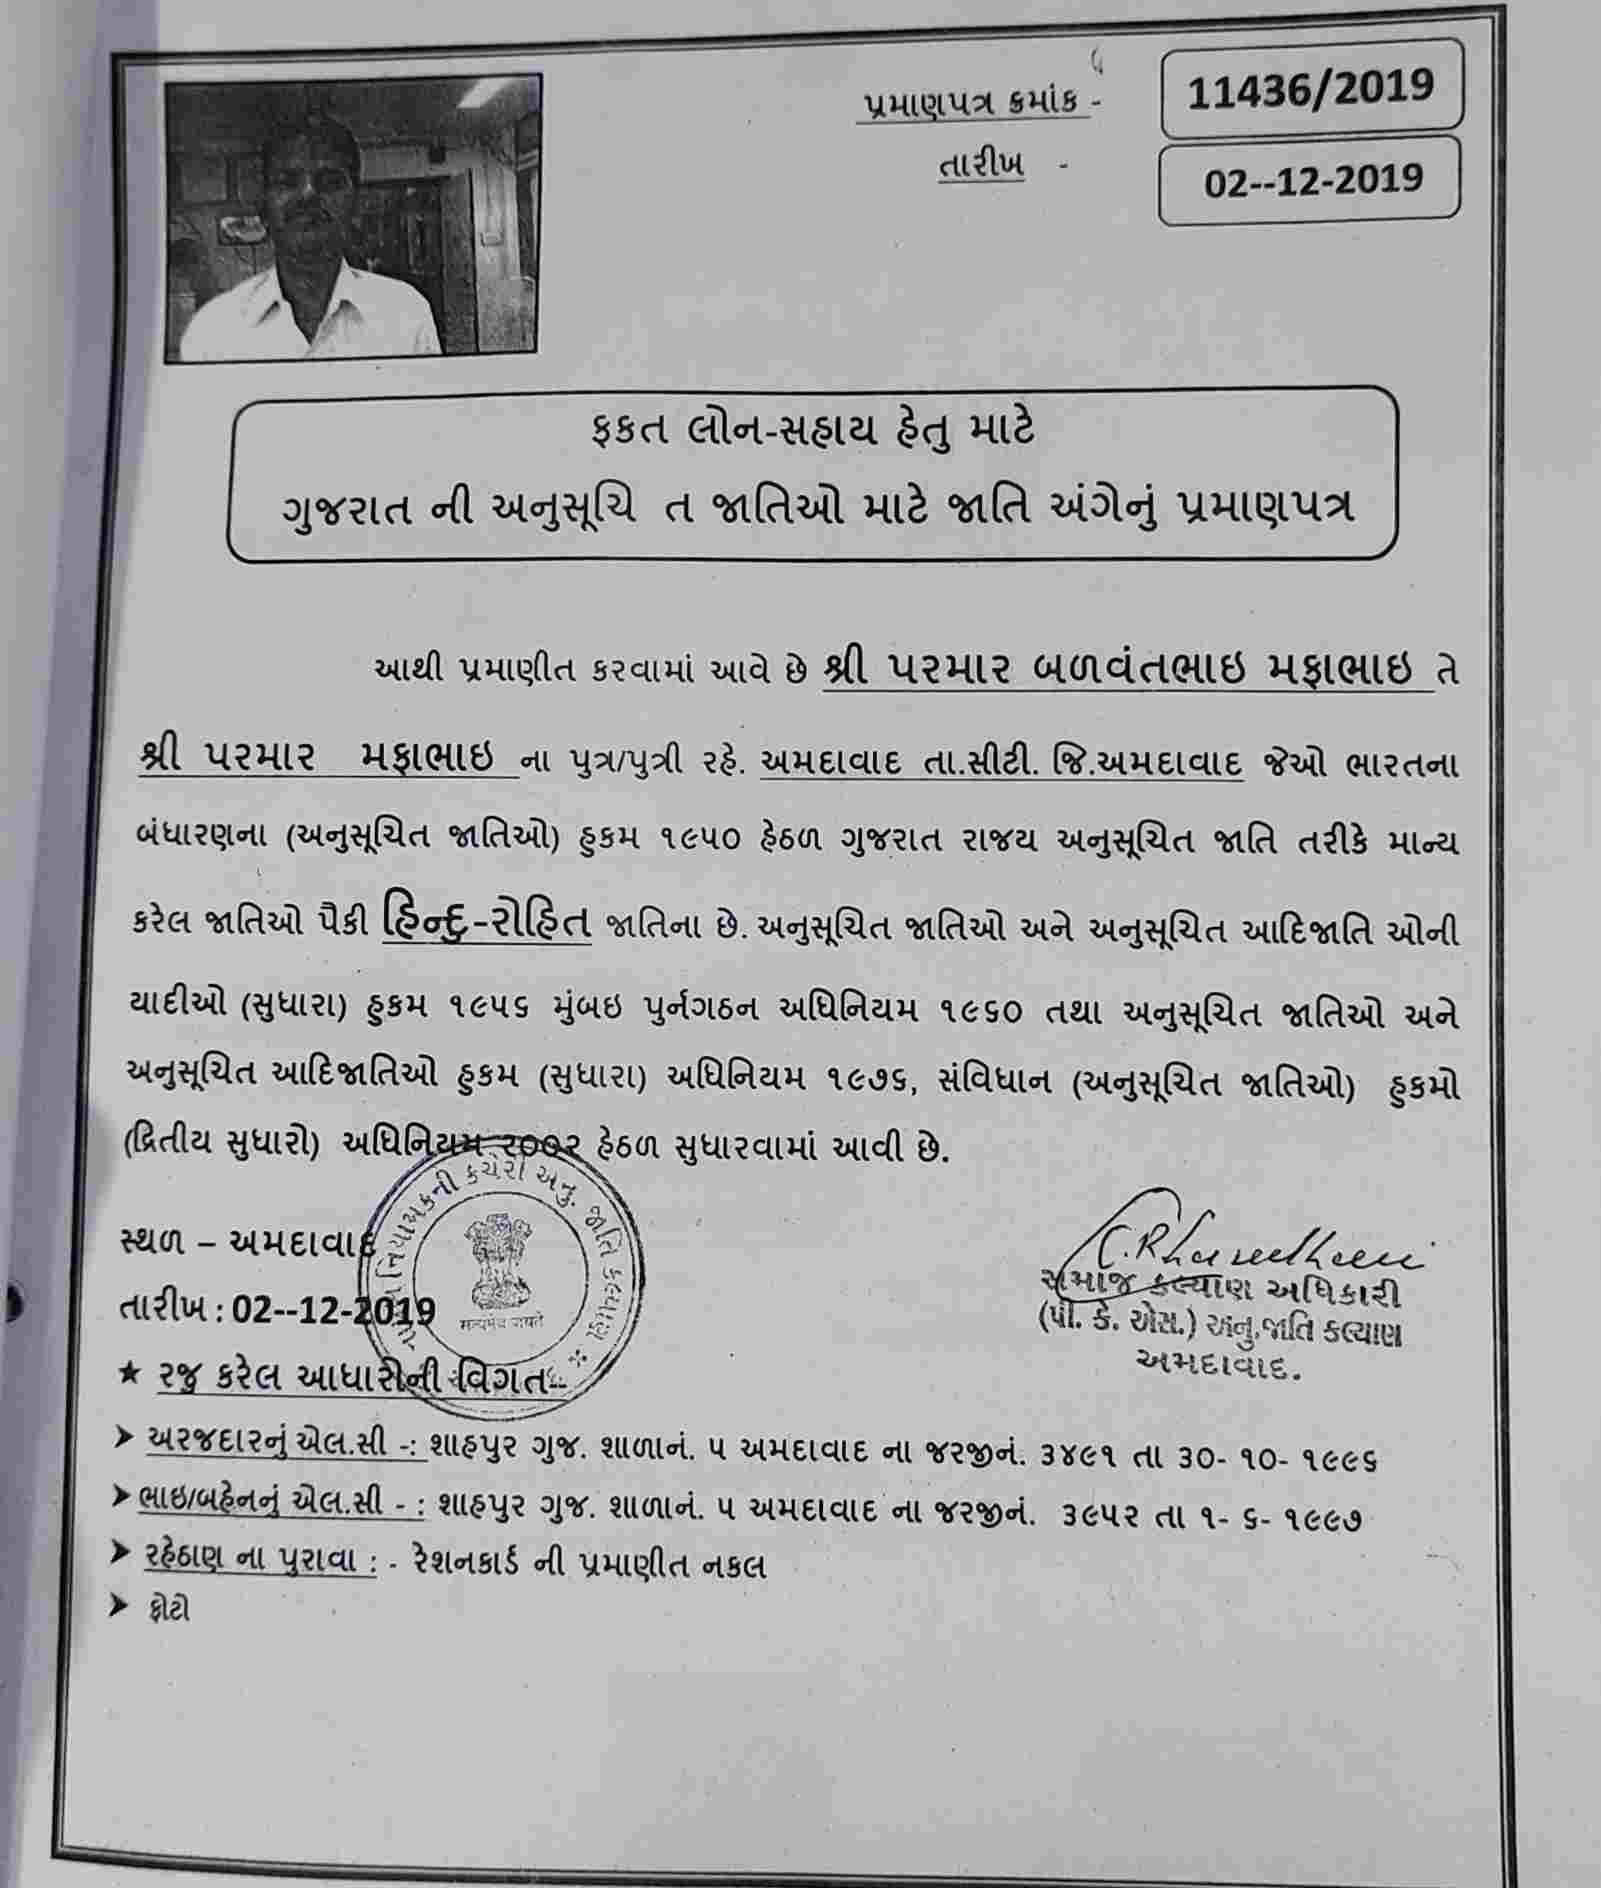 પ્રમાણપત્ર ક્રમાંક - 11436/2019
તારીખ - 02--12-2019
ફકત લોન-સહાય હેતુ માટે
ગુજરાત ની અનુસૂચિ ત જાતિઓ માટે જાતિ અંગેનું પ્રમાણપત્ર
આથી પ્રમાણીત કરવામાં આવે છે શ્રી પરમાર બળવંતભાઇ મફાભાઇ તે
શ્રી પરમાર મફાભાઇ ના પુત્ર/પુત્રી રહે. અમદાવાદ તા.સીટી. જિ.અમદાવાદ જેઓ ભારતના
બંધારણના (અનુસૂચિત જાતિઓ) હુકમ ૧૯૫૦ હેઠળ ગુજરાત રાજય અનુસૂચિત જાતિ તરીકે માન્ય
કરેલ જાતિઓ પૈકી હિન્દુ-રોહિત જાતિના છે. અનુસૂચિત જાતિઓ અને અનુસૂચિત આદિજાતિ ઓની
યાદીઓ (સુધારા) હુકમ ૧૯૫૬ મુંબઇ પુર્નગઠન અધિનિયમ ૧૯૬૦ તથા અનુસૂચિત જાતિઓ અને
અનુસૂચિત આદિજાતિઓ હુકમ (સુધારા) અધિનિયમ ૧૯૭૬, સંવિધાન (અનુસૂચિત જાતિઓ) હુકમો
(દ્રિતીય સુધારો) અધિનિયમ ૨૦૦૨ હેઠળ સુધારવામાં આવી છે.
નિયામકની કચેરી અનુ. જાતિ કલ્યાણ
सत्यमेव जयते
સ્થળ – અમદાવાદ
તારીખ : 02--12-2019
સમાજ કલ્યાણ અધિકારી
(પી. કે. એસ.) અનુ.જાતિ કલ્યાણ
અમદાવાદ.
★ રજુ કરેલ આધારોની વિગત-
➤ અરજદારનું એલ.સી -: શાહપુર ગુજ. શાળાનં. ૫ અમદાવાદ ના જરજીનં. ૩૪૯૧ તા ૩૦- ૧૦- ૧૯૯૬
➤ ભાઇ/બહેનનું એલ.સી - : શાહપુર ગુજ. શાળાનં. ૫ અમદાવાદ ના જરજીનં. ૩૯૫૨ તા ૧- ૬- ૧૯૯૭
➤ રહેઠાણ ના પુરાવા : - રેશનકાર્ડ ની પ્રમાણીત નકલ
➤ ફોટો